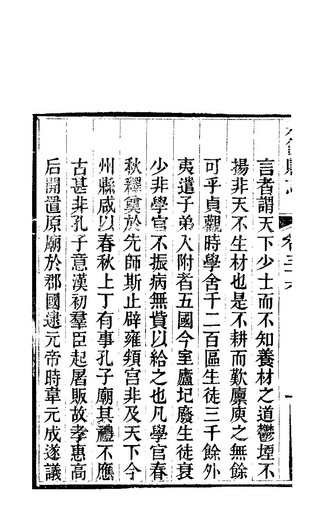 卷三
言者謂天下少士而不知養材之道鬱堙不
揚非天不生材也是不耕而歎廩庾之無餘
可乎貞觀時學舍千二百區生徒三千餘外
夷遣子弟入附者五國今室廬圮廢生徒衰
少非學官不振病無貲以給之也凡學官春
秋釋奠於先師斯止辟雍頖宮非及天下今
州縣咸以春秋上丁有事孔子廟其禮不應
古甚非孔子意漢初羣臣起屠販故孝惠高
后開置原廟於郡國逮元帝時韋元成遂議